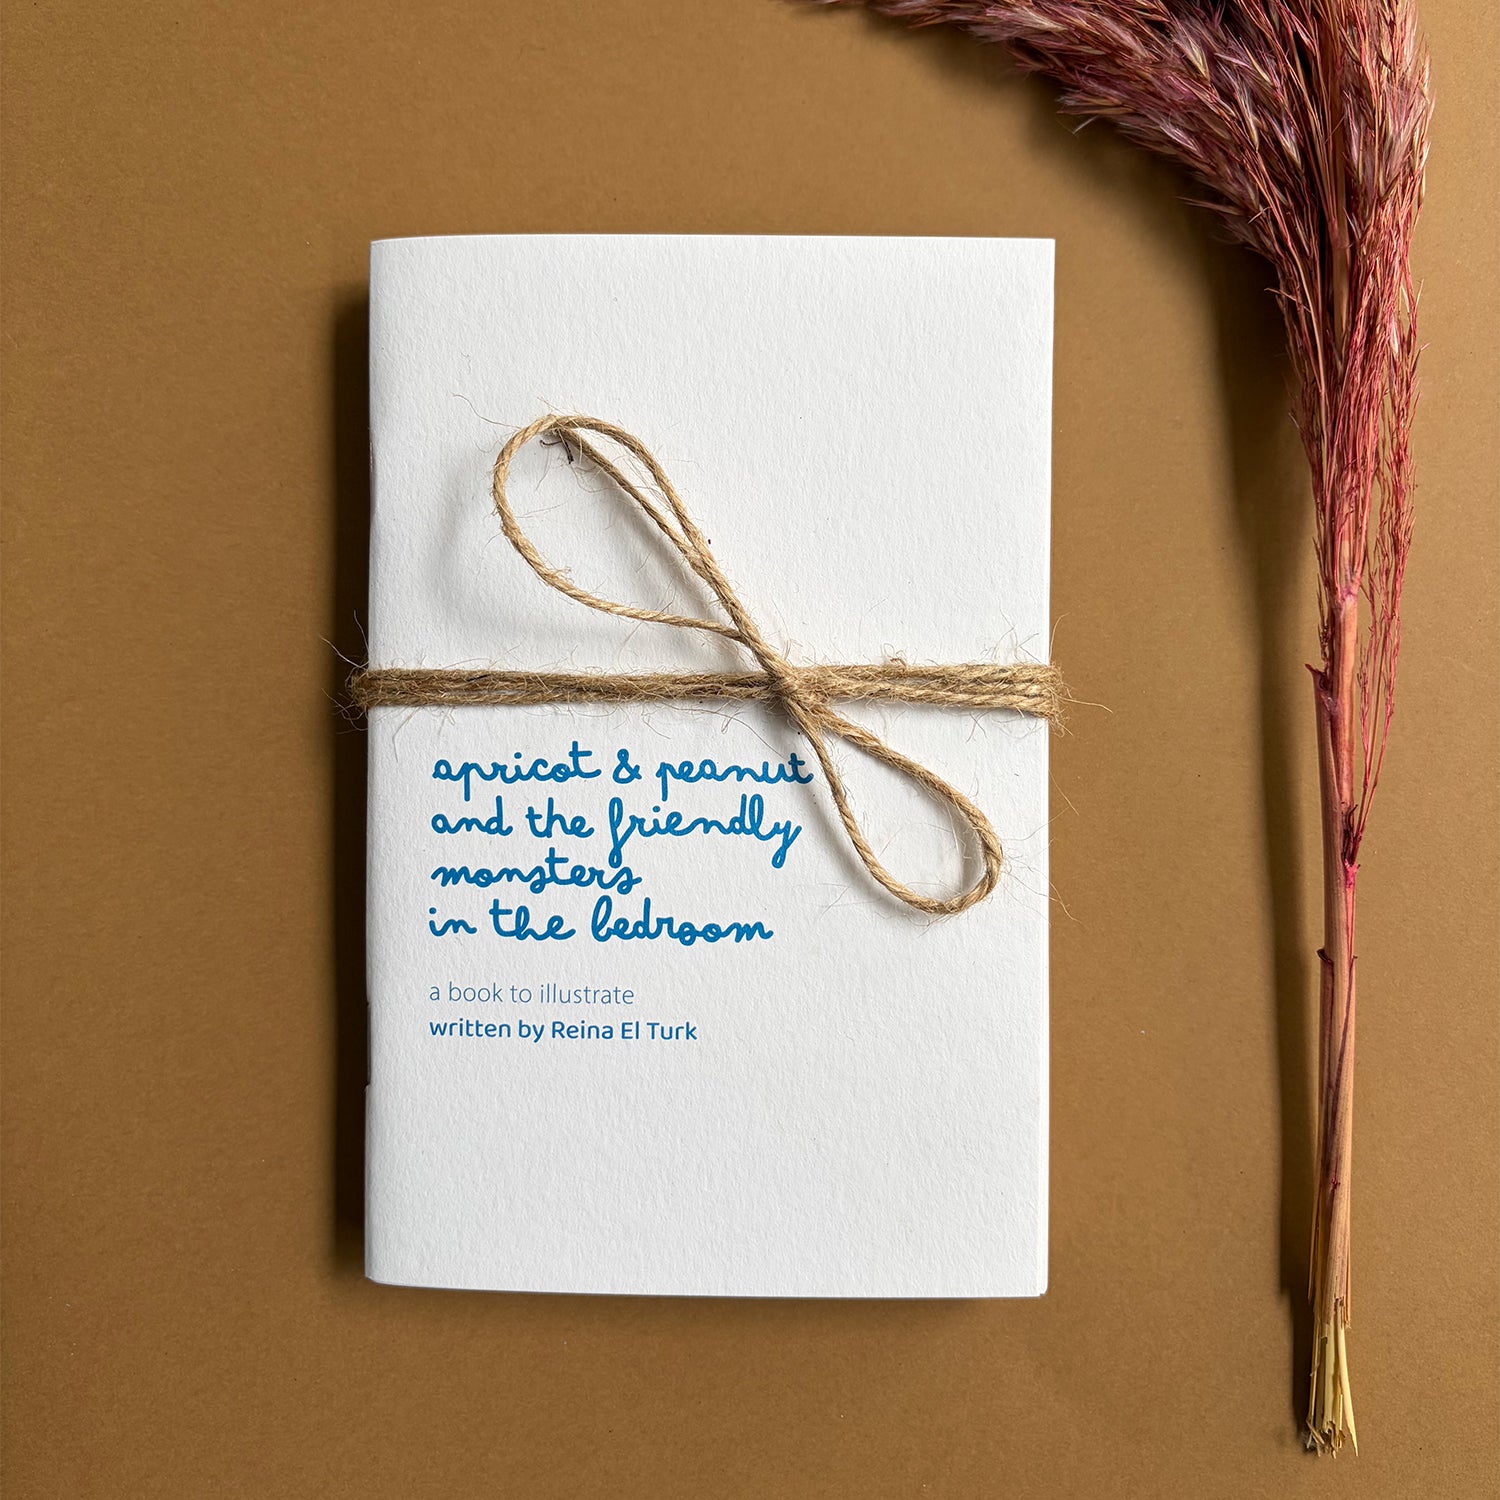 apricot & peanut
and the friendly
monsters
in the bedroom
a book to illustrate
written by Reina El Turk